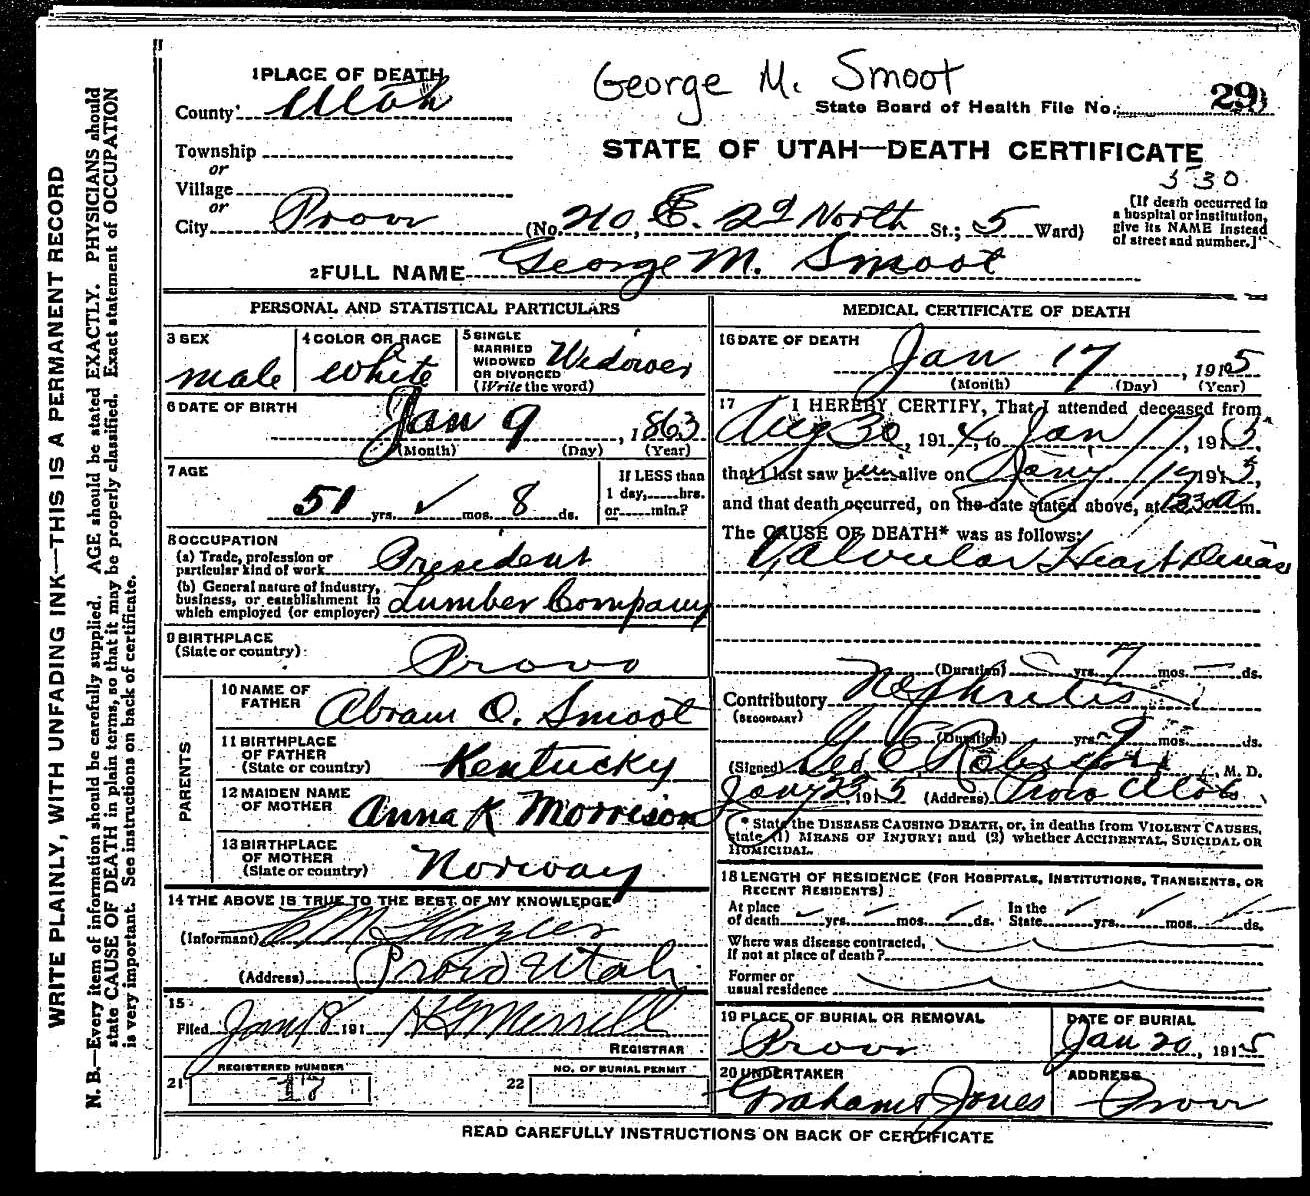 George M. Smoot
1 PLACE OF DEATH
County Utah
State Board of Health File No. 29
STATE OF UTAH—DEATH CERTIFICATE
Township
or
Village
or
City Provo (No. 210, E. 2d North St.; 5 Ward)
530
[If death occurred in
a hospital or institution,
give its NAME instead
of street and number.]
2 FULL NAME George M. Smoot
PERSONAL AND STATISTICAL PARTICULARS
3 SEX male
4 COLOR OR RACE white
5 SINGLE
MARRIED
WIDOWED
OR DIVORCED
(Write the word) Widower
6 DATE OF BIRTH
Jan 9, 1863
(Month) (Day) (Year)
7 AGE
51 yrs. ✓ mos. 8 ds.
If LESS than
1 day, hrs.
or min.?
8 OCCUPATION
(a) Trade, profession or
particular kind of work President
(b) General nature of industry,
business, or establishment in
which employed (or employer) Lumber Company
9 BIRTHPLACE
(State or country) Provo
PARENTS
10 NAME OF
FATHER Abram O. Smoot
11 BIRTHPLACE
OF FATHER
(State or country) Kentucky
12 MAIDEN NAME
OF MOTHER Anna K Morrison
13 BIRTHPLACE
OF MOTHER
(State or country) Norway
14 THE ABOVE IS TRUE TO THE BEST OF MY KNOWLEDGE
(Informant)
(Address) Provo Utah
15
Filed Jan 18 191 Merrill
REGISTRAR
21 REGISTERED NUMBER 17
22 NO. OF BURIAL PERMIT
MEDICAL CERTIFICATE OF DEATH
16 DATE OF DEATH
Jan 17, 1915
(Month) (Day) (Year)
17 I HEREBY CERTIFY, That I attended deceased from
Aug 30, 1914, to Jan 17, 1915,
that I last saw him alive on Jany 17 1915,
and that death occurred, on the date stated above, at m.
The CAUSE OF DEATH* was as follows:
Valvular Heart Disease
(Duration) yrs. 7 mos. — ds.
Contributory Nephritis
(SECONDARY)
(Duration) yrs. mos. ds.
(Signed) Geo E Robison, M. D.
Jany, 1915 (Address) Provo Utah
* State the DISEASE CAUSING DEATH, or, in deaths from VIOLENT CAUSES,
state (1) MEANS OF INJURY; and (2) whether ACCIDENTAL, SUICIDAL OR
HOMICIDAL.
18 LENGTH OF RESIDENCE (FOR HOSPITALS, INSTITUTIONS, TRANSIENTS, OR
RECENT RESIDENTS)
At place
of death yrs. mos. ds. In the
State yrs. mos. ds.
Where was disease contracted,
If not at place of death?
Former or
usual residence
19 PLACE OF BURIAL OR REMOVAL
Provo
DATE OF BURIAL
Jan 20, 1915
20 UNDERTAKER
Graham & Jones
ADDRESS
Provo
READ CAREFULLY INSTRUCTIONS ON BACK OF CERTIFICATE
WRITE PLAINLY, WITH UNFADING INK—THIS IS A PERMANENT RECORD
N. B.—Every item of information should be carefully supplied. AGE should be stated EXACTLY. PHYSICIANS should
state CAUSE OF DEATH in plain terms, so that it may be properly classified. Exact statement of OCCUPATION
is very important. See instructions on back of certificate.